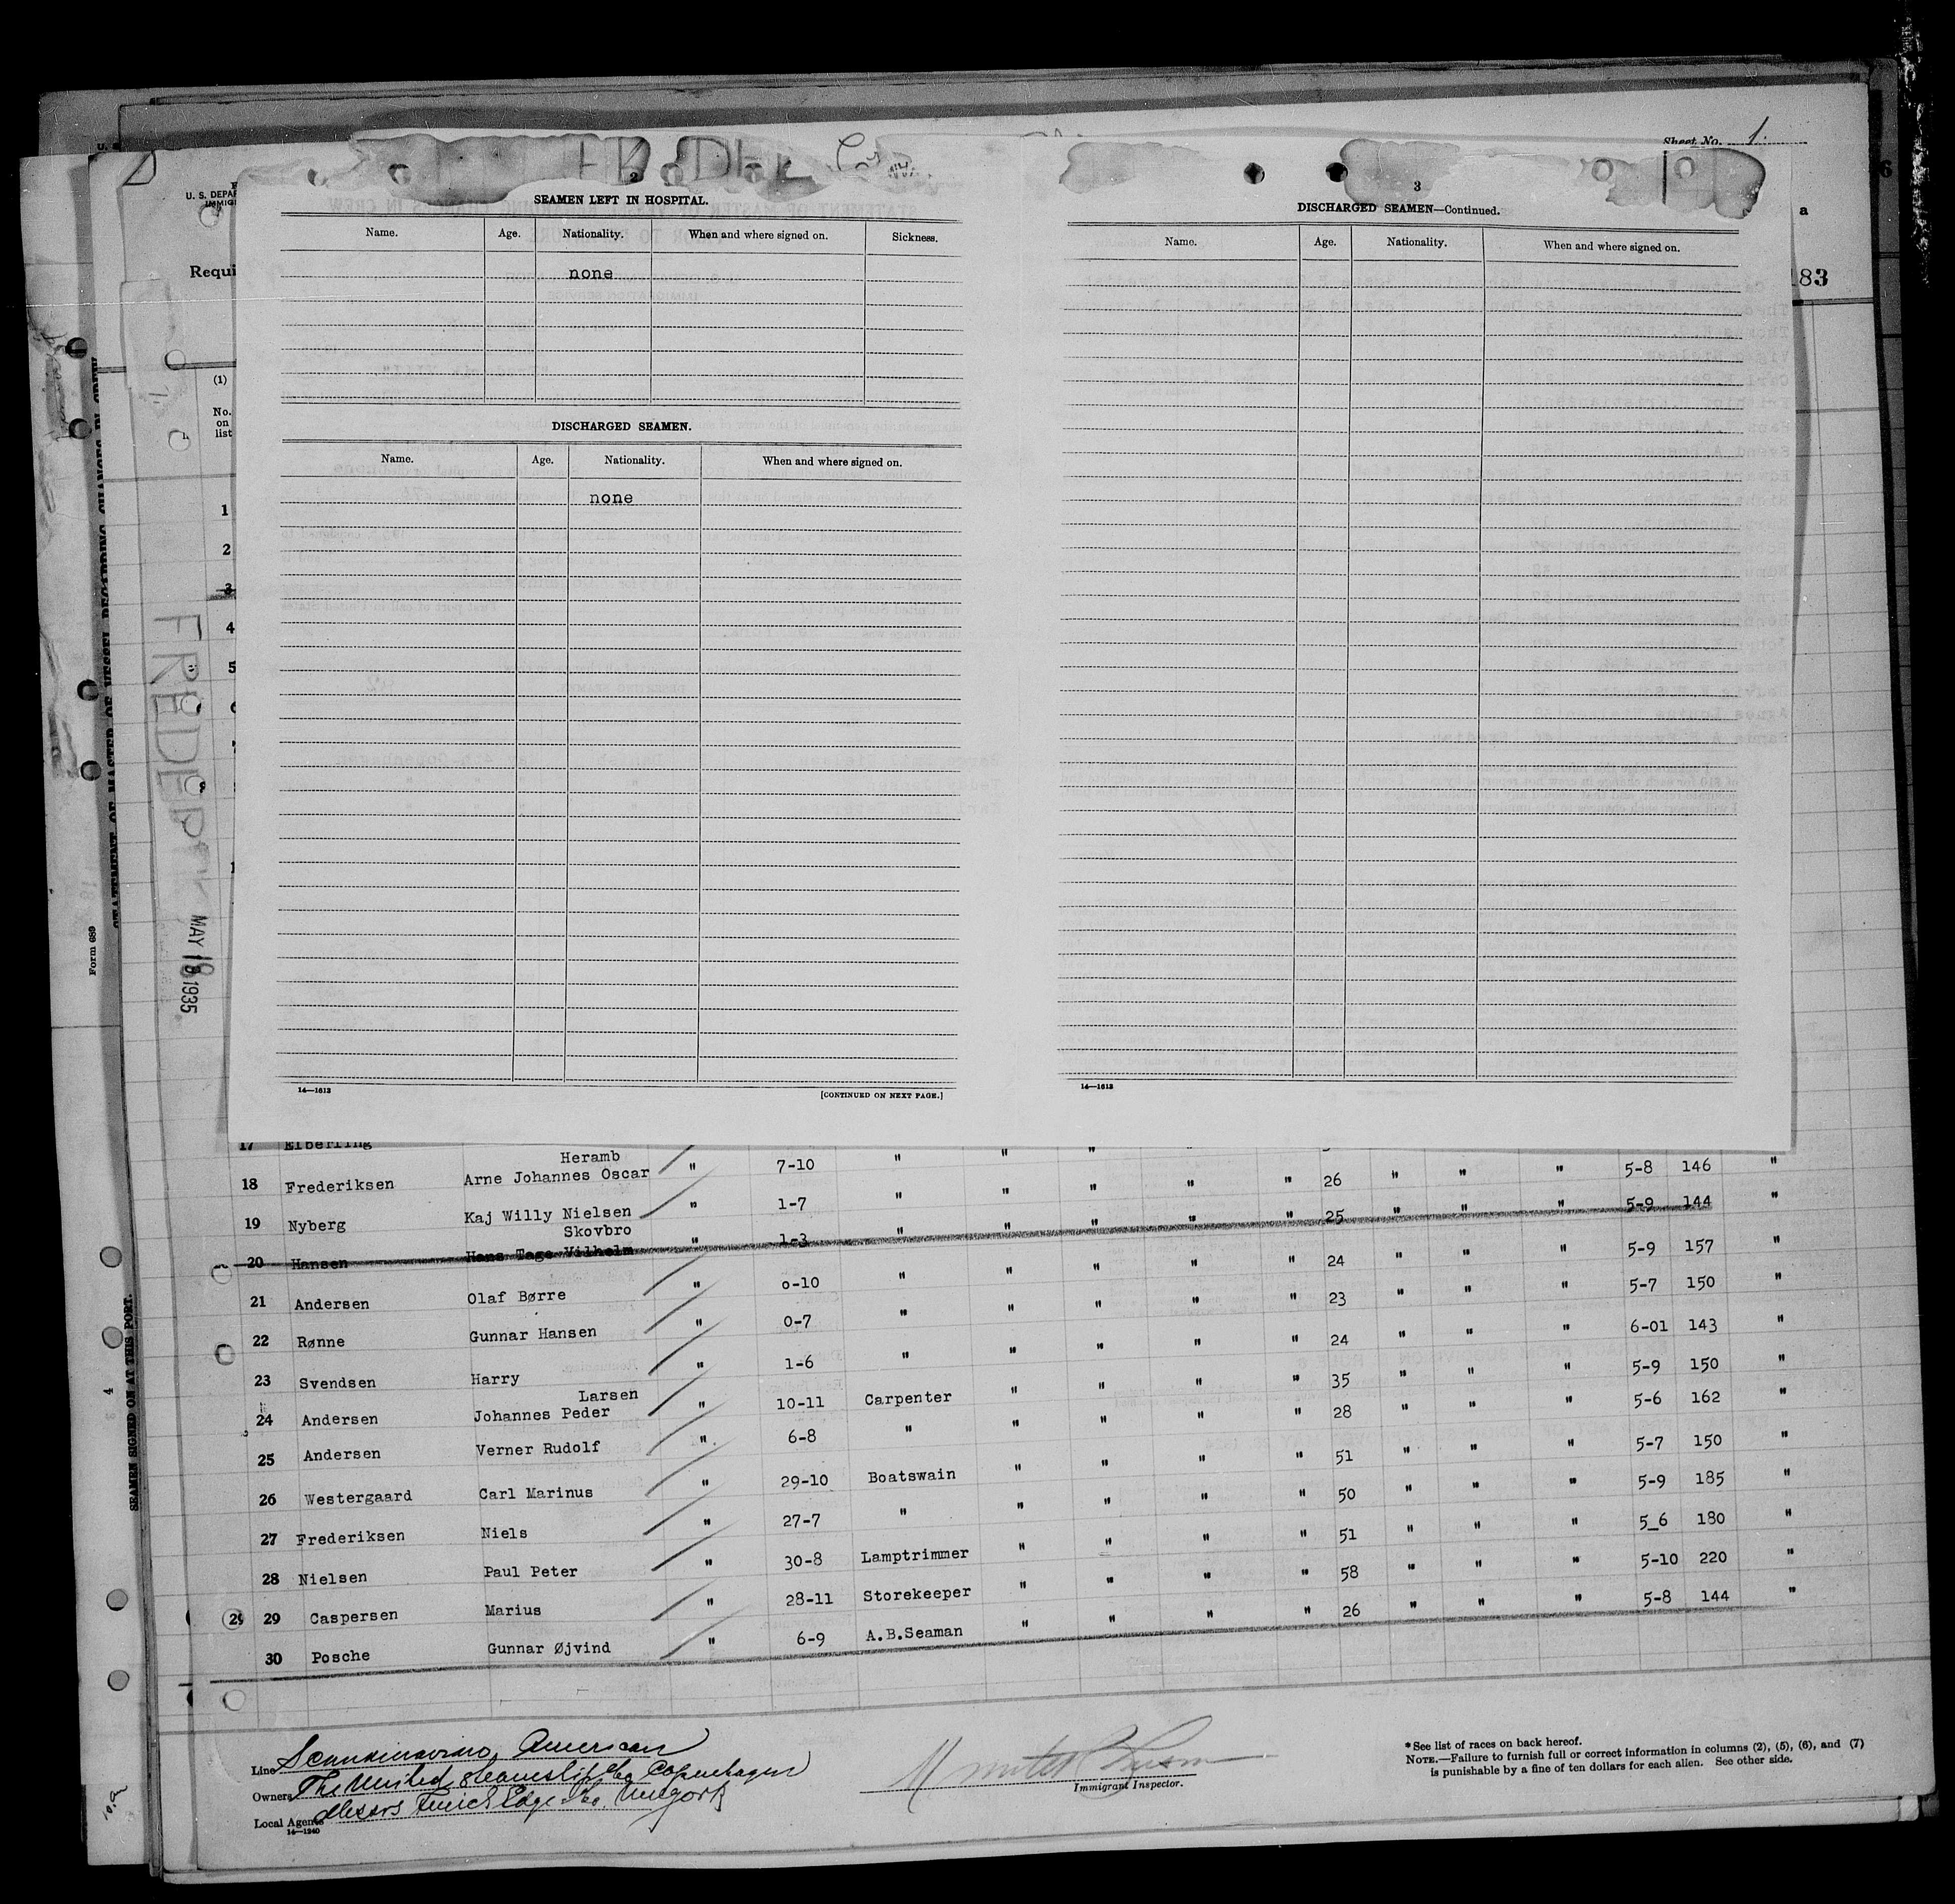 Sheet No. 1.
2
SEAMEN LEFT IN HOSPITAL.
Name. Age. Nationality. When and where signed on. Sickness.
none
DISCHARGED SEAMEN.
Name. Age. Nationality. When and where signed on.
none
14—1613
[CONTINUED ON NEXT PAGE.]
3
DISCHARGED SEAMEN—Continued.
Name. Age. Nationality. When and where signed on.
14—1613
a
183
6
U. S. DEPAR
IMMIG
Requi
(1)
No.
on
list
1
2
3
4
5
STATEMENT OF MASTER OF VESSEL REGARDING CHANGES IN CREW
Form 689
SEAMEN SIGNED ON AT THIS PORT.
4
FREDEPIK
MAY 18 1935
17 Elberling
Heramb
18 Frederiksen Arne Johannes Oscar " 7-10 " " " " " 26 " " " 5-8 146 "
19 Nyberg Kaj Willy Nielsen " 1-7 " " " " " 25 " " " 5-9 144 "
Skovbro
20 Hansen Hans Tage Vilhelm " 1-3 " " " " " 24 " " " 5-9 157 "
21 Andersen Olaf Børre " 0-10 " " " " " 23 " " " 5-7 150 "
22 Rønne Gunnar Hansen " 0-7 " " " " " 24 " " " 6-01 143 "
23 Svendsen Harry " 1-6 " " " " " 35 " " " 5-9 150 "
Larsen
24 Andersen Johannes Peder " 10-11 Carpenter " " " " 28 " " " 5-6 162 "
25 Andersen Verner Rudolf " 6-8 " " " " " 51 " " " 5-7 150 "
26 Westergaard Carl Marinus " 29-10 Boatswain " " " " 50 " " " 5-9 185 "
27 Frederiksen Niels " 27-7 " " " " " 51 " " " 5_6 180 "
28 Nielsen Paul Peter " 30-8 Lamptrimmer " " " " 58 " " " 5-10 220 "
29 29 Caspersen Marius " 28-11 Storekeeper " " " " 26 " " " 5-8 144 "
30 Posche Gunnar Øjvind " 6-9 A.B.Seaman "
Line Scandinavian American
Owners The United Steamship Co Copenhagen
Local Agents Messrs Funch Edye & Co. Newyork
14—1240
Immigrant Inspector.
* See list of races on back hereof.
NOTE.—Failure to furnish full or correct information in columns (2), (5), (6), and (7)
is punishable by a fine of ten dollars for each alien. See other side.